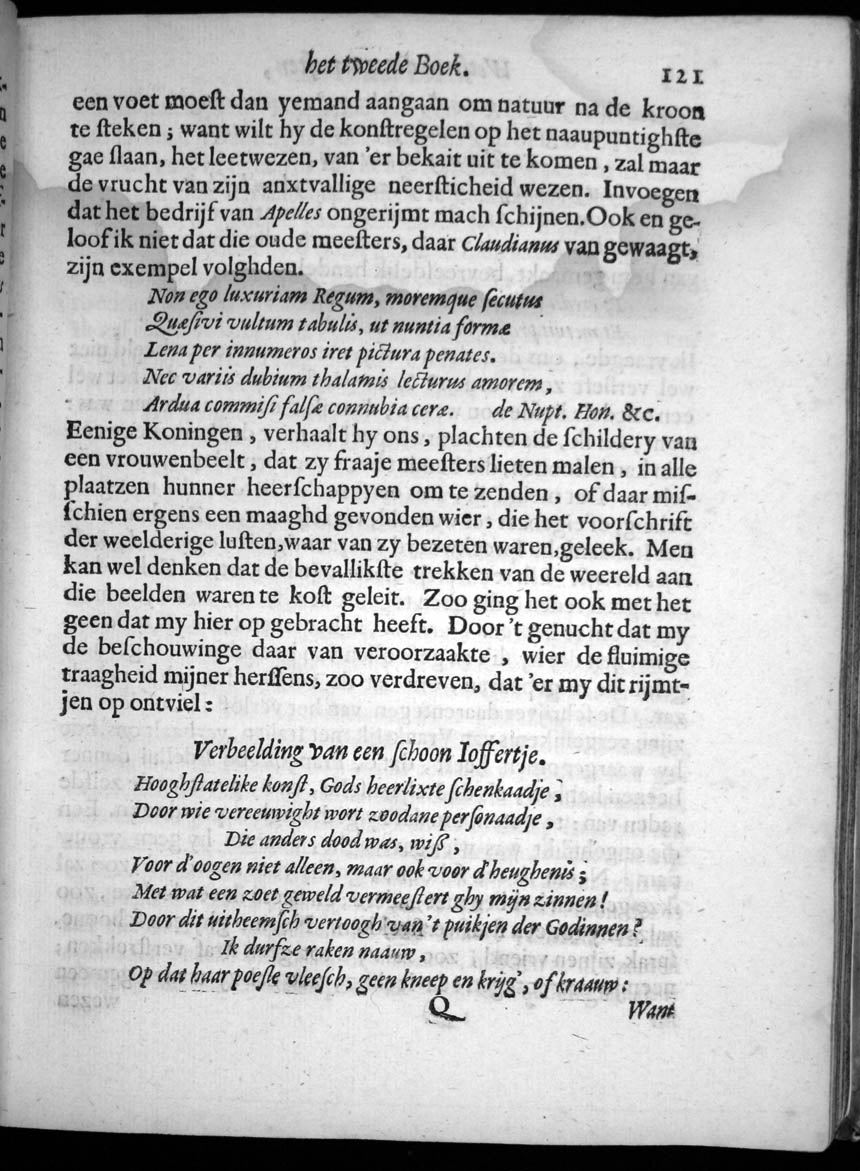 het tweede Boek. 121
een voet moeſt dan yemand aangaan om natuur na de kroon
te ſteken ; want wilt hy de konſtregelen op het naaupuntighſte
gae ſlaan, het leetwezen, van 'er bekait uit te komen , zal maar
de vrucht van zijn anxtvallige neerſticheid wezen. Invoegen
dat het bedrijf van Apelles ongerijmt mach ſchijnen. Ook en ge-
loof ik niet dat die oude meeſters, daar Claudianus van gewaagt,
zijn exempel volghden.
Non ego luxuriam Regum, moremque ſecutus
Quæſivi vultum tabulis, ut nuntia formæ
Lena per innumeros iret pictura penates.
Nec variis dubium thalamis lecturus amorem,
Ardua commiſi falſæ connubia ceræ. de Nupt. Hon. &c.
Eenige Koningen , verhaalt hy ons, plachten de ſchildery van
een vrouwenbeelt, dat zy fraaje meeſters lieten malen , in alle
plaatzen hunner heerſchappyen om te zenden , of daar miſ-
ſchien ergens een maaghd gevonden wier, die het voorſchrift
der weelderige luſten, waar van zy bezeten waren, geleek. Men
kan wel denken dat de bevallikſte trekken van de weereld aan
die beelden waren te koſt geleit. Zoo ging het ook met het
geen dat my hier op gebracht heeft. Door 't genucht dat my
de beſchouwinge daar van veroorzaakte , wier de ſluimige
traagheid mijner herſſens, zoo verdreven, dat 'er my dit rijmt-
jen op ontviel :
Verbeelding van een ſchoon Ioffertje.
Hooghſtatelike konſt, Gods heerlixte ſchenkaadje ;
Door wie vereeuwight wort zoodane perſonaadje ,
Die anders dood was, wiſſ ,
Voor d'oogen niet alleen, maar ook voor d'heughenis ;
Met wat een zoet geweld vermeeſtert ghy mijn zinnen !
Door dit uitheemſch vertoogh van 't puikjen der Godinnen ?
Ik durfze raken naauw,
Op dat haar poeſle vleeſch, geen kneep en krijg', of kraauw :
Q Want